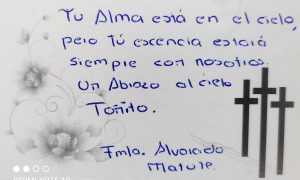 Tu Alma está en el cielo,
pero tú escencia estará
siempre con nosotros.
Un Abrazo al cielo
Toñito.
Fmla. Alvarado
Matute.